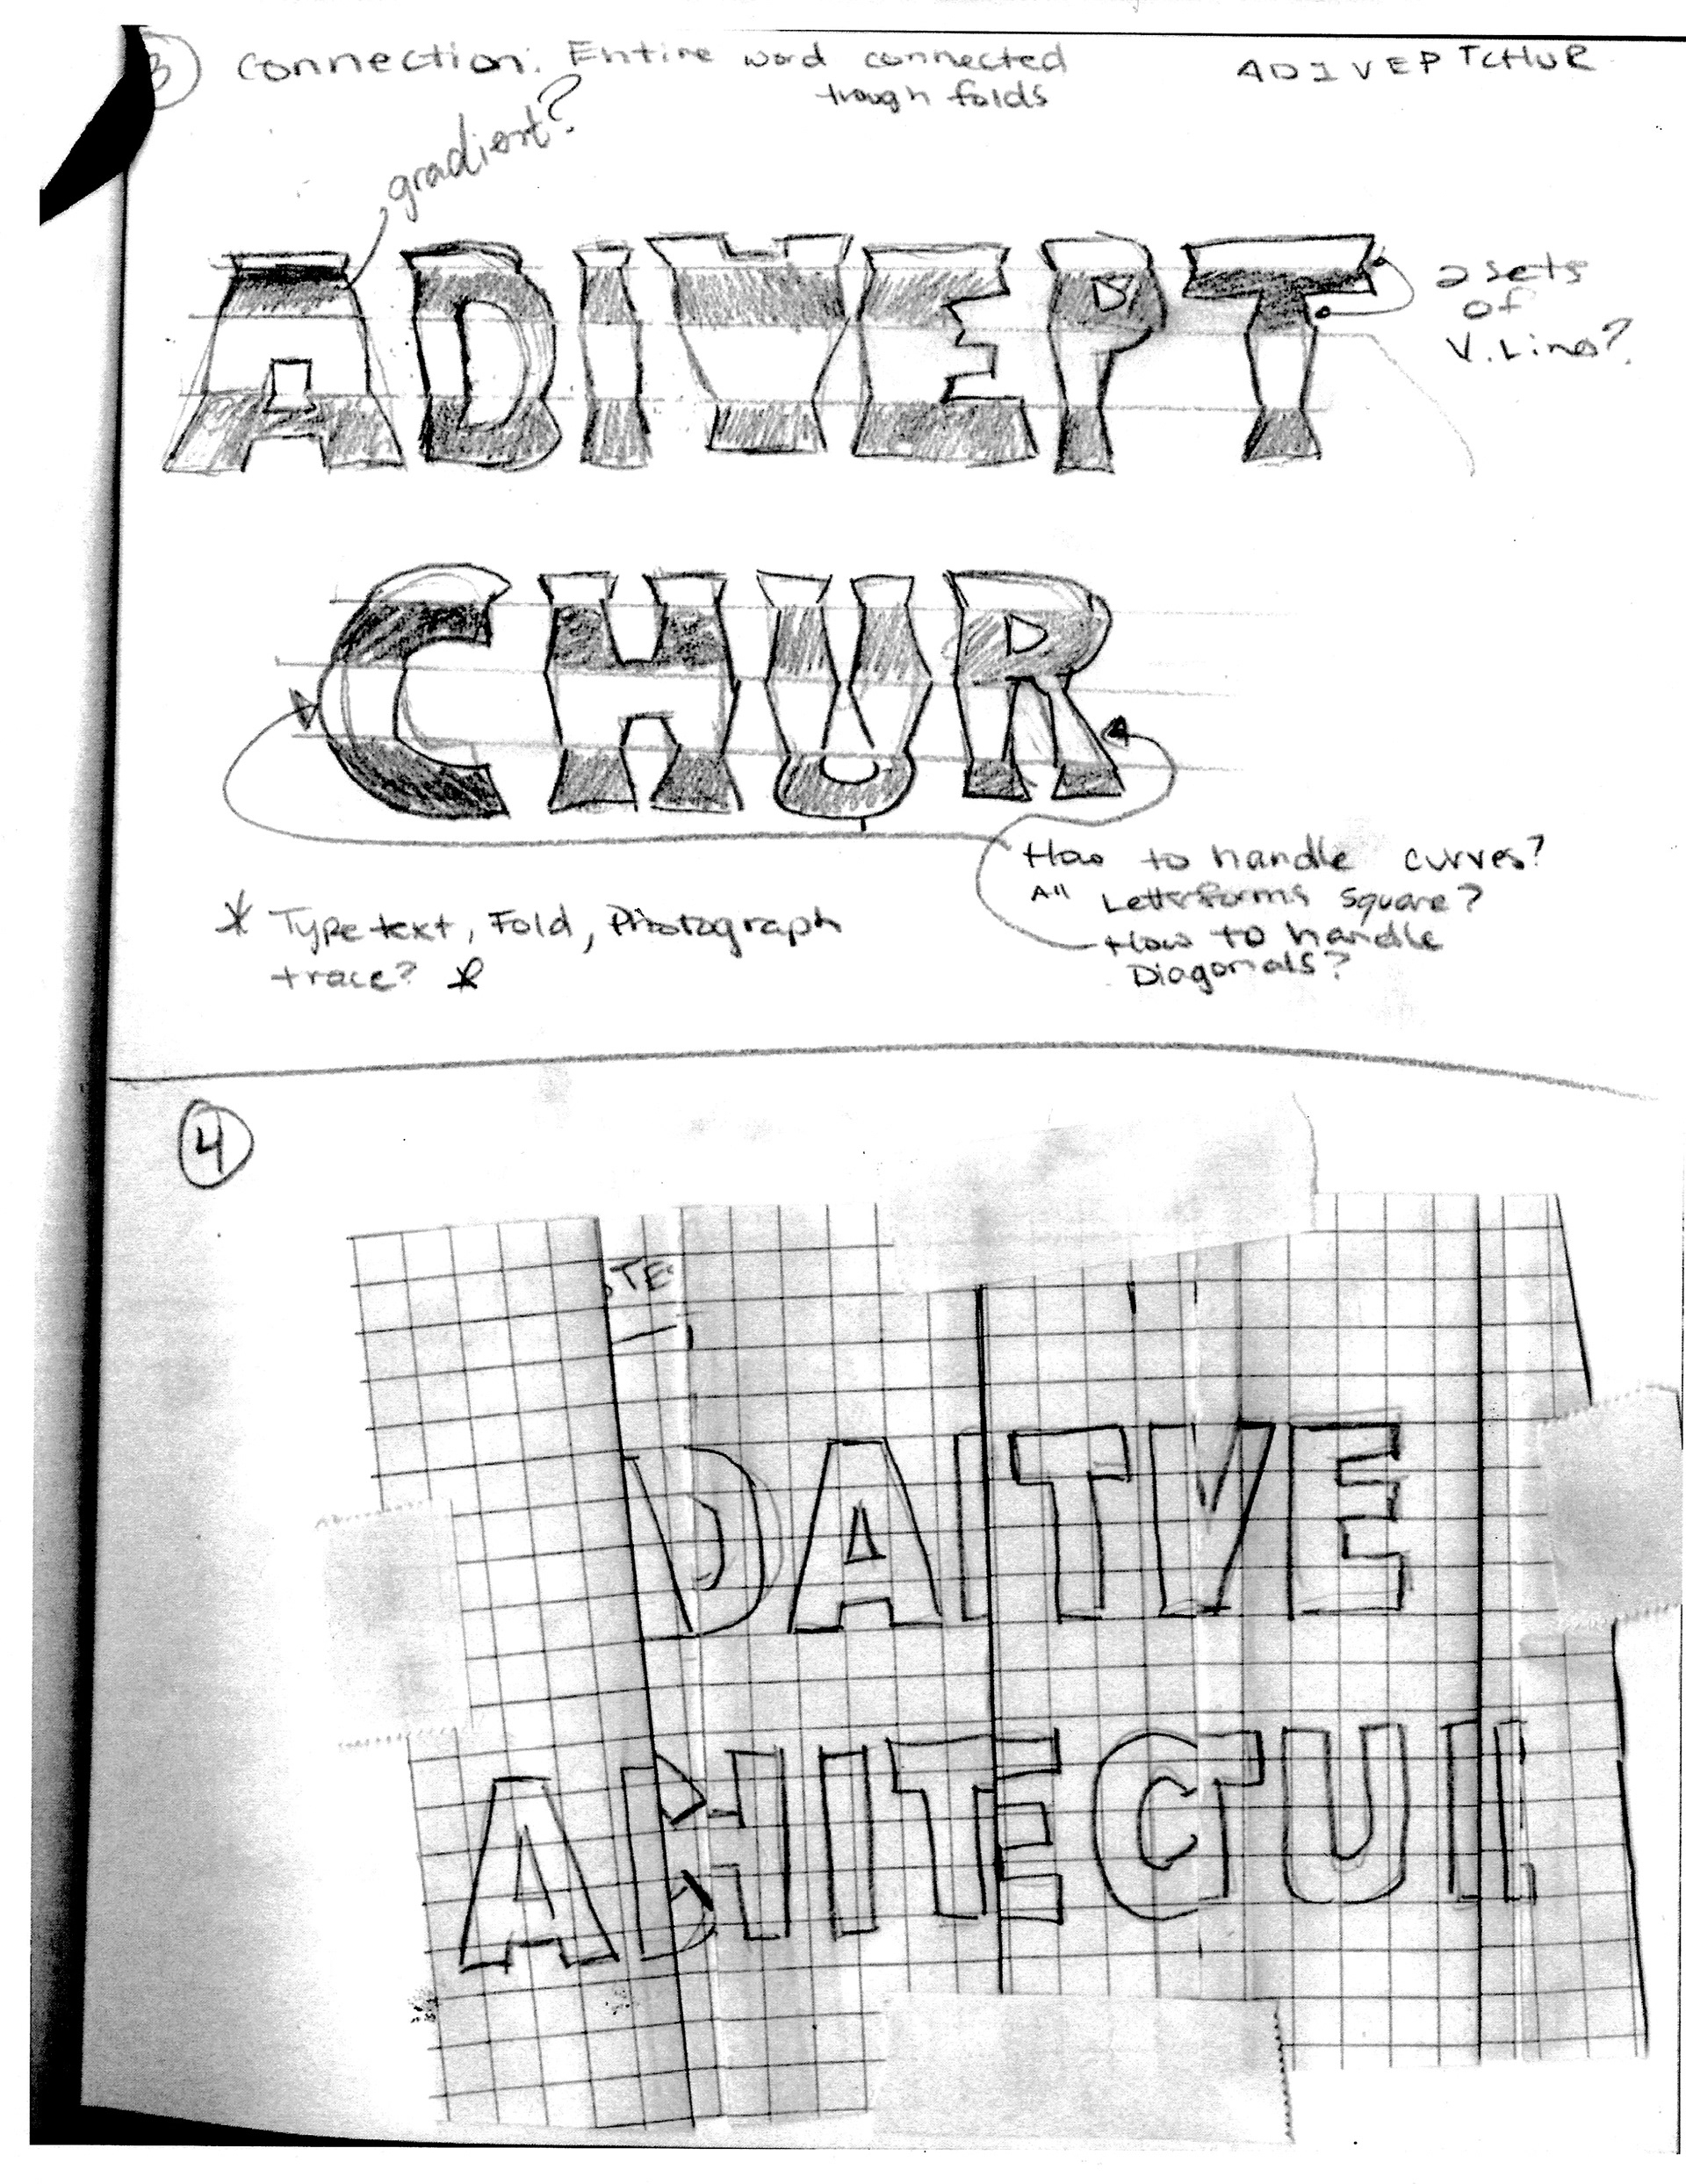 3 Connection: Entire word connected
trough folds
ADIVEPTCHUR
gradient?
ADIVEPT
2 sets
of
V. Lines?
CHUR
How to handle curves?
All Letterforms square?
How to handle
Diagonals?
* Type text, Fold, Photograph
trace? *
4
STE
DAITVE